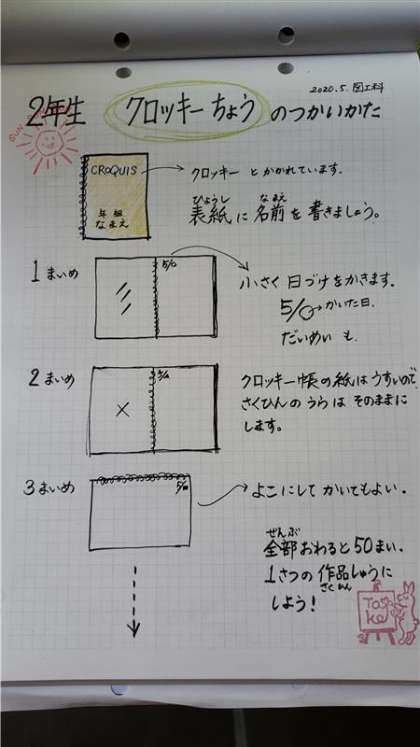 2020.5. 図工科
2年生 クロッキーちょう のつかいかた
CROQUIS
年 組
なまえ
クロッキー とかかれています。
ひょうし なまえ
表紙に名前を書きましょう。
1まいめ
小さく日づけをかきます。
5/○→かいた日.
だいめいも.
2まいめ
クロッキー帳の紙はうすいので、
さくひんのうらは そのままに
します。
3まいめ
よこにして かいてもよい.
ぜんぶ
全部おわると50まい.
1さつの作品しゅうに
さくひん
しよう!